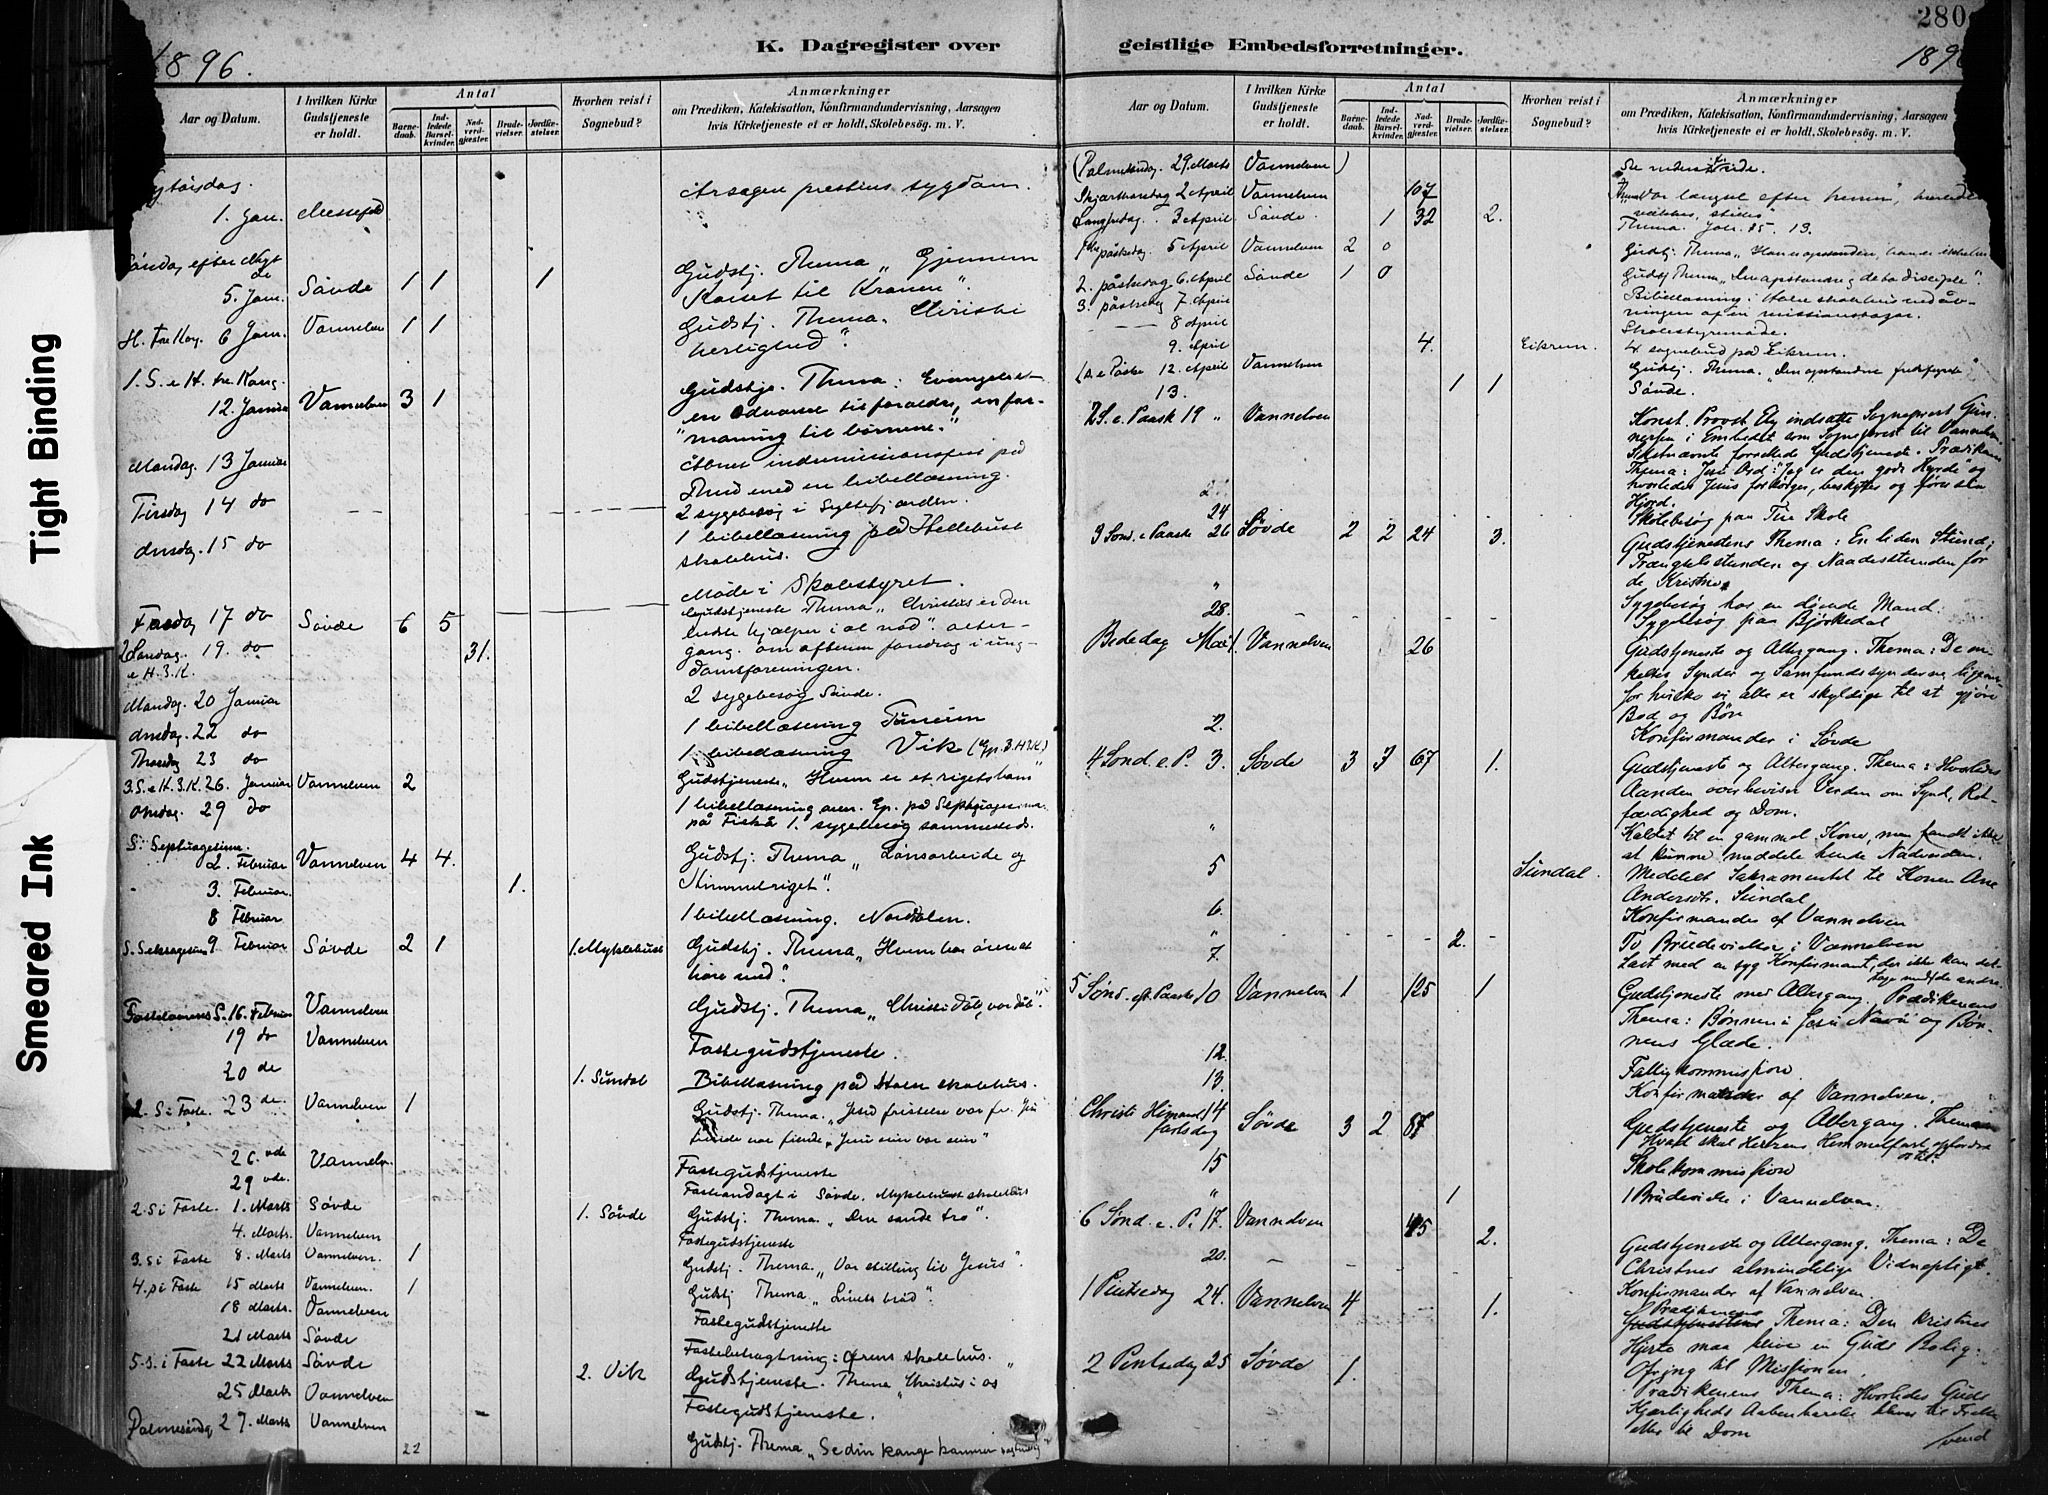 280
1896.
K. Dagregister over
geistlige Embedsforretninger.
189
Aar og Datum.
I hvilken Kirke Gudstjeneste er holdt.
Antal
Barnedaab.
Indledede Barselkvinder.
Nadverdgjester.
Brudevielser.
Jordfæstelser.
Hvorhen reist i Sognebud?
Anmærkninger
om Prædiken, Katekisation, Konfirmandundervisning, Aarsagen
hvis Kirketjeneste ei er holdt, Skolebesög. m. V.
1. Jan. Messefald
Årsagen prestens sygdom.
Søndag efter Nyt
5. Jan. Søvde 1 1 1 Gudstj. Thema „Gjennem
Korset til Kronen".
H. tre Kong. 6 Jan. Vannelven 1 1 Gudstj. Thema. Christi
herlighed".
1. S. e H. tre Kong.
12. Januar Vannelven 3 1 Gudstj. Thema: Evangeliet
en advarsel til forældre, en for-
maning til børnene."
Mandag. 13 Januar
med en bibellæsning.
Tirsdag 14 do 2 sygebesøg i Syltefjorden.
Onsdag. 15 do 1 bibellæsning på Hellebust
skolehus.
Møde i Skolestyret.
Fredag 17 do
Søndag. 19. do Søvde 6 5 31. Gudstjeneste Thema „Christus er den
bedste hjælper i al nød". alter-
gang. om aftenen foredrag i ung-
domsforeningen.
e H. 3. K.
Mandag. 20 Januar 2 sygebesøg Søvde.
Onsdag. 22 do 1 bibellæsning
Thorsdag 23 do 1 bibellæsning Vik
3. S. e H. 3. K. 26. Januar Vannelven 2 Gudstjeneste
Onsdag. 29 do 1 bibellæsning
på Fiskå 1. sygebesøg sammesteds.
S. Septuagesima
2. Februar Vannelven 4 4. Gudstj: Thema „Lønsarbeide og
Himmelriget".
3. Februar. 1.
8 Februar 1 bibellæsning. Nordalen.
S. Seksagesima 9 Februar Søvde 2 1 1. Myklebust Gudstj. Thema „Hvem har øren at
høre med".
Fastelavens S. 16. Februar Vannelven Gudstj. Thema „Christi dåb, vor dåb".
19 do Vannelven Fastegudstjeneste.
20 de 1. Sundal Bibellæsning på Stole skolehus.
1. S i Faste. 23 de. Vannelven 1 Gudstj. Thema. „Jesu fristelse
26. Vannelv. Fastegudstjeneste
29 Fasteandagt i Søvde. Myklebust skolehus
2. S i Faste. 1. Marts Søvde 1. Søvde Gudstj. Thema. „Den sande tro".
4. Marts. Vannelven Fastegudstjeneste
3. S i Faste 8. Marts Vannelven. 1 Gudstj. Thema. „Vor stilling til Jesus".
4. s i Faste 15 Marts Vannelven. 1 Gudstj Thema „Livets brød".
18 Marts. Vannelven Fastegudstjeneste
21 Marts Søvde Fastebetragtning: Ørens skolehus.
5. S. i Faste 22 Marts Søvde 2. Vik Gudstjeneste. Thema „Christus i os"
25 Marts Vannelven Fastegudstjeneste.
Palmesøndag 29. Marts Vannelven Gudstj. Thema „Se din konge kommer
22
Aar og Datum.
I hvilken Kirke Gudstjeneste er holdt.
Antal
Barnedaab.
Indledede Barselkvinder.
Nadverdgjester.
Brudevielser.
Jordfæstelser.
Hvorhen reist i Sognebud?
Anmærkninger
om Prædiken, Katekisation, Konfirmandundervisning, Aarsagen
hvis Kirketjeneste ei er holdt, Skolebesög. m. V.
(Palmesøndag. 29. Marts Vannelven)
Skjærthorsdag 2 April Vannelven 107
Langfredag. 3 April Søvde. 1 32 2. Thema. Joh. 15. 13.
1ste påskedag. 5 April Vannelven 2 0
2. påskedag 6 April Søvde 1 0
3. påskedag 7 April
8 April Skolestyremøde.
9. April 4. Eikrem. 4 sognebud på Eikrem.
1 S. e Påske 12. April Vannelven Gudstj. Thema.
13. 1 1 Søvde.
2 S. e. Paask 19 " Vannelven Konst. Provst Ely indsatte Sogneprest Gun-
nersen i Embedet som Sogneprest til Vannelven
Sidstnævnte forrettede Gudstjeneste. Prædikens
Thema: Jesu Ord: "Jeg er den gode Hyrde" og
hvorledes Jesus forsørger, beskytter og fører sin
Hjord.
24 Skolebesøg paa Tue Skole
3 Sønd. e. Paaske 26 Søvde 2 2 24 3. Gudstjenestens Thema: En liden Stund;
Trængselsstunden og Naadesstunden for
de Kristne.
" Sygebesøg hos en døende Mand.
28. Sygebesøg paa Bjørkedal
Bededag Mai 1. Vannelven 26 Gudstjeneste og Altergang. Thema: De en-
keltes Synder og Samfundssynderne
for hvilke vi alle er skyldige til at gjøre
Bod og Bøn
2. Konfirmander i Søvde
4 Sønd. e. P. 3. Søvde 3 3 67 1. Gudstjeneste og Altergang. Thema: Hvorledes
Aanden overbeviser Verden om Synd, Ret-
færdighed og Dom.
" Kaldet til en gammel Kone, men fandt ikke
at kunne meddele hende Nadverden.
5 Sundal. Meddelt Sakramentet til Konen Ane
Andersdtr. Sundal
6. Konfirmander af Vannelven
" 2. To Brudevielser i Vannelven
7. Læst med en syg Konfirmant, der ikke kan del-
tage med de andre.
5 Sønd. eft. Paaske 10 Vannelven 1 125 1 Gudstjeneste med Altergang. Prædikenens
Thema: Bønnen i Jesu Navn og Bøn-
nens Glæde.
12. Fattigkommission
13. Konfirmander af Vannelven.
Christi Himmel- 14
fartsdag Søvde 3 2 87 Gudstjeneste og Altergang. Thema
Hvad skal Herrens Himmelfart opfordre
os til?
15 Skolekommission
" 1 1 Brudevielse i Vannelven.
6 Sønd. e. P. 17. Vannelven 45 2. Gudstjeneste og Altergang. Thema: De
Christnes almindelige Vidnepligt.
20. Konfirmander af Vannelven.
1 Pintsedag 24. Vannelven 4 1. Prædikenens
Gudstjenestens Thema: Den kristnes
Hjerte maa blive en Guds Bolig.
Ofring til Missionen.
2 Pentsedag 25 Søvde 1. Prædikenens Thema: Hvorledes Guds
Kjærligheds Aabenbarelse bliver til Frelse
eller til Dom
/vend
Tight Binding
Smeared Ink